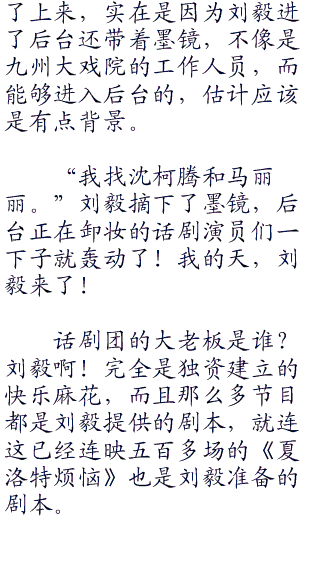 了上来，实在是因为刘毅进
了后台还带着墨镜，不像是
九州大戏院的工作人员，而
能够进入后台的，估计应该
是有点背景。
“我找沈柯腾和马丽
丽。”刘毅摘下了墨镜，后
台正在卸妆的话剧演员们一
下子就轰动了！我的天，刘
毅来了！
话剧团的大老板是谁？
刘毅啊！完全是独资建立的
快乐麻花，而且那么多节目
都是刘毅提供的剧本，就连
这已经连映五百多场的《夏
洛特烦恼》也是刘毅准备的
剧本。